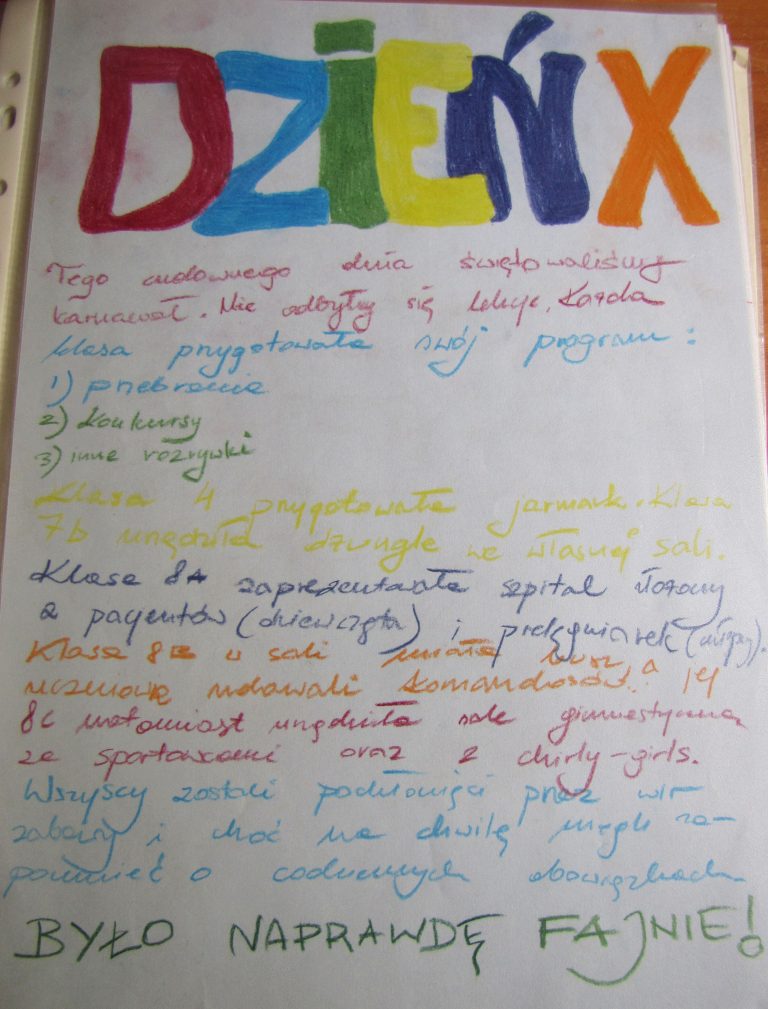 DZIEŃ X
Tego cudownego dnia świętowaliśmy
karnawał. Nie odbyły się lekcje. Każda
klasa przygotowała swój program:
1) przebranie
2) konkursy
3) inne rozrywki
Klasa 4 przygotowała jarmark. Klasa
7b urządziła dżunglę we własnej sali.
Klasa 8A zaprezentowała szpital złożony
z pacjentów (dziewczęta) i pielęgniarek (chłopcy).
Klasa 8B w sali miała busz, a
uczniowie udawali komandosów!
8c natomiast urządziła salę gimnastyczną
ze sportowcami oraz z chirly-girls.
Wszyscy zostali pochłonięci przez wir
zabawy i choć na chwilę mogli za-
pomnieć o codziennych obowiązkach.
BYŁO NAPRAWDĘ FAJNIE!